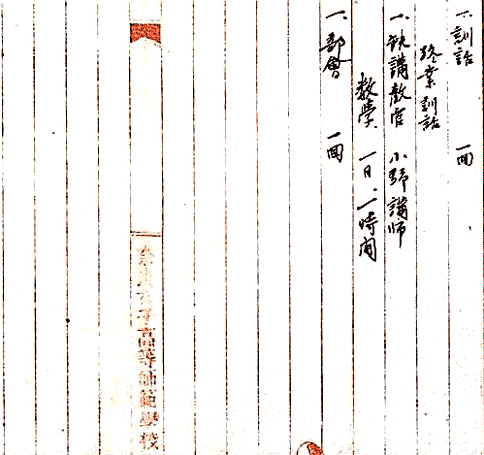 一、訓話 一回
終業訓話
一、缺講教官 小野講師
数學、一日、一時間
一、部會 一回
奈良女子高等師範學校